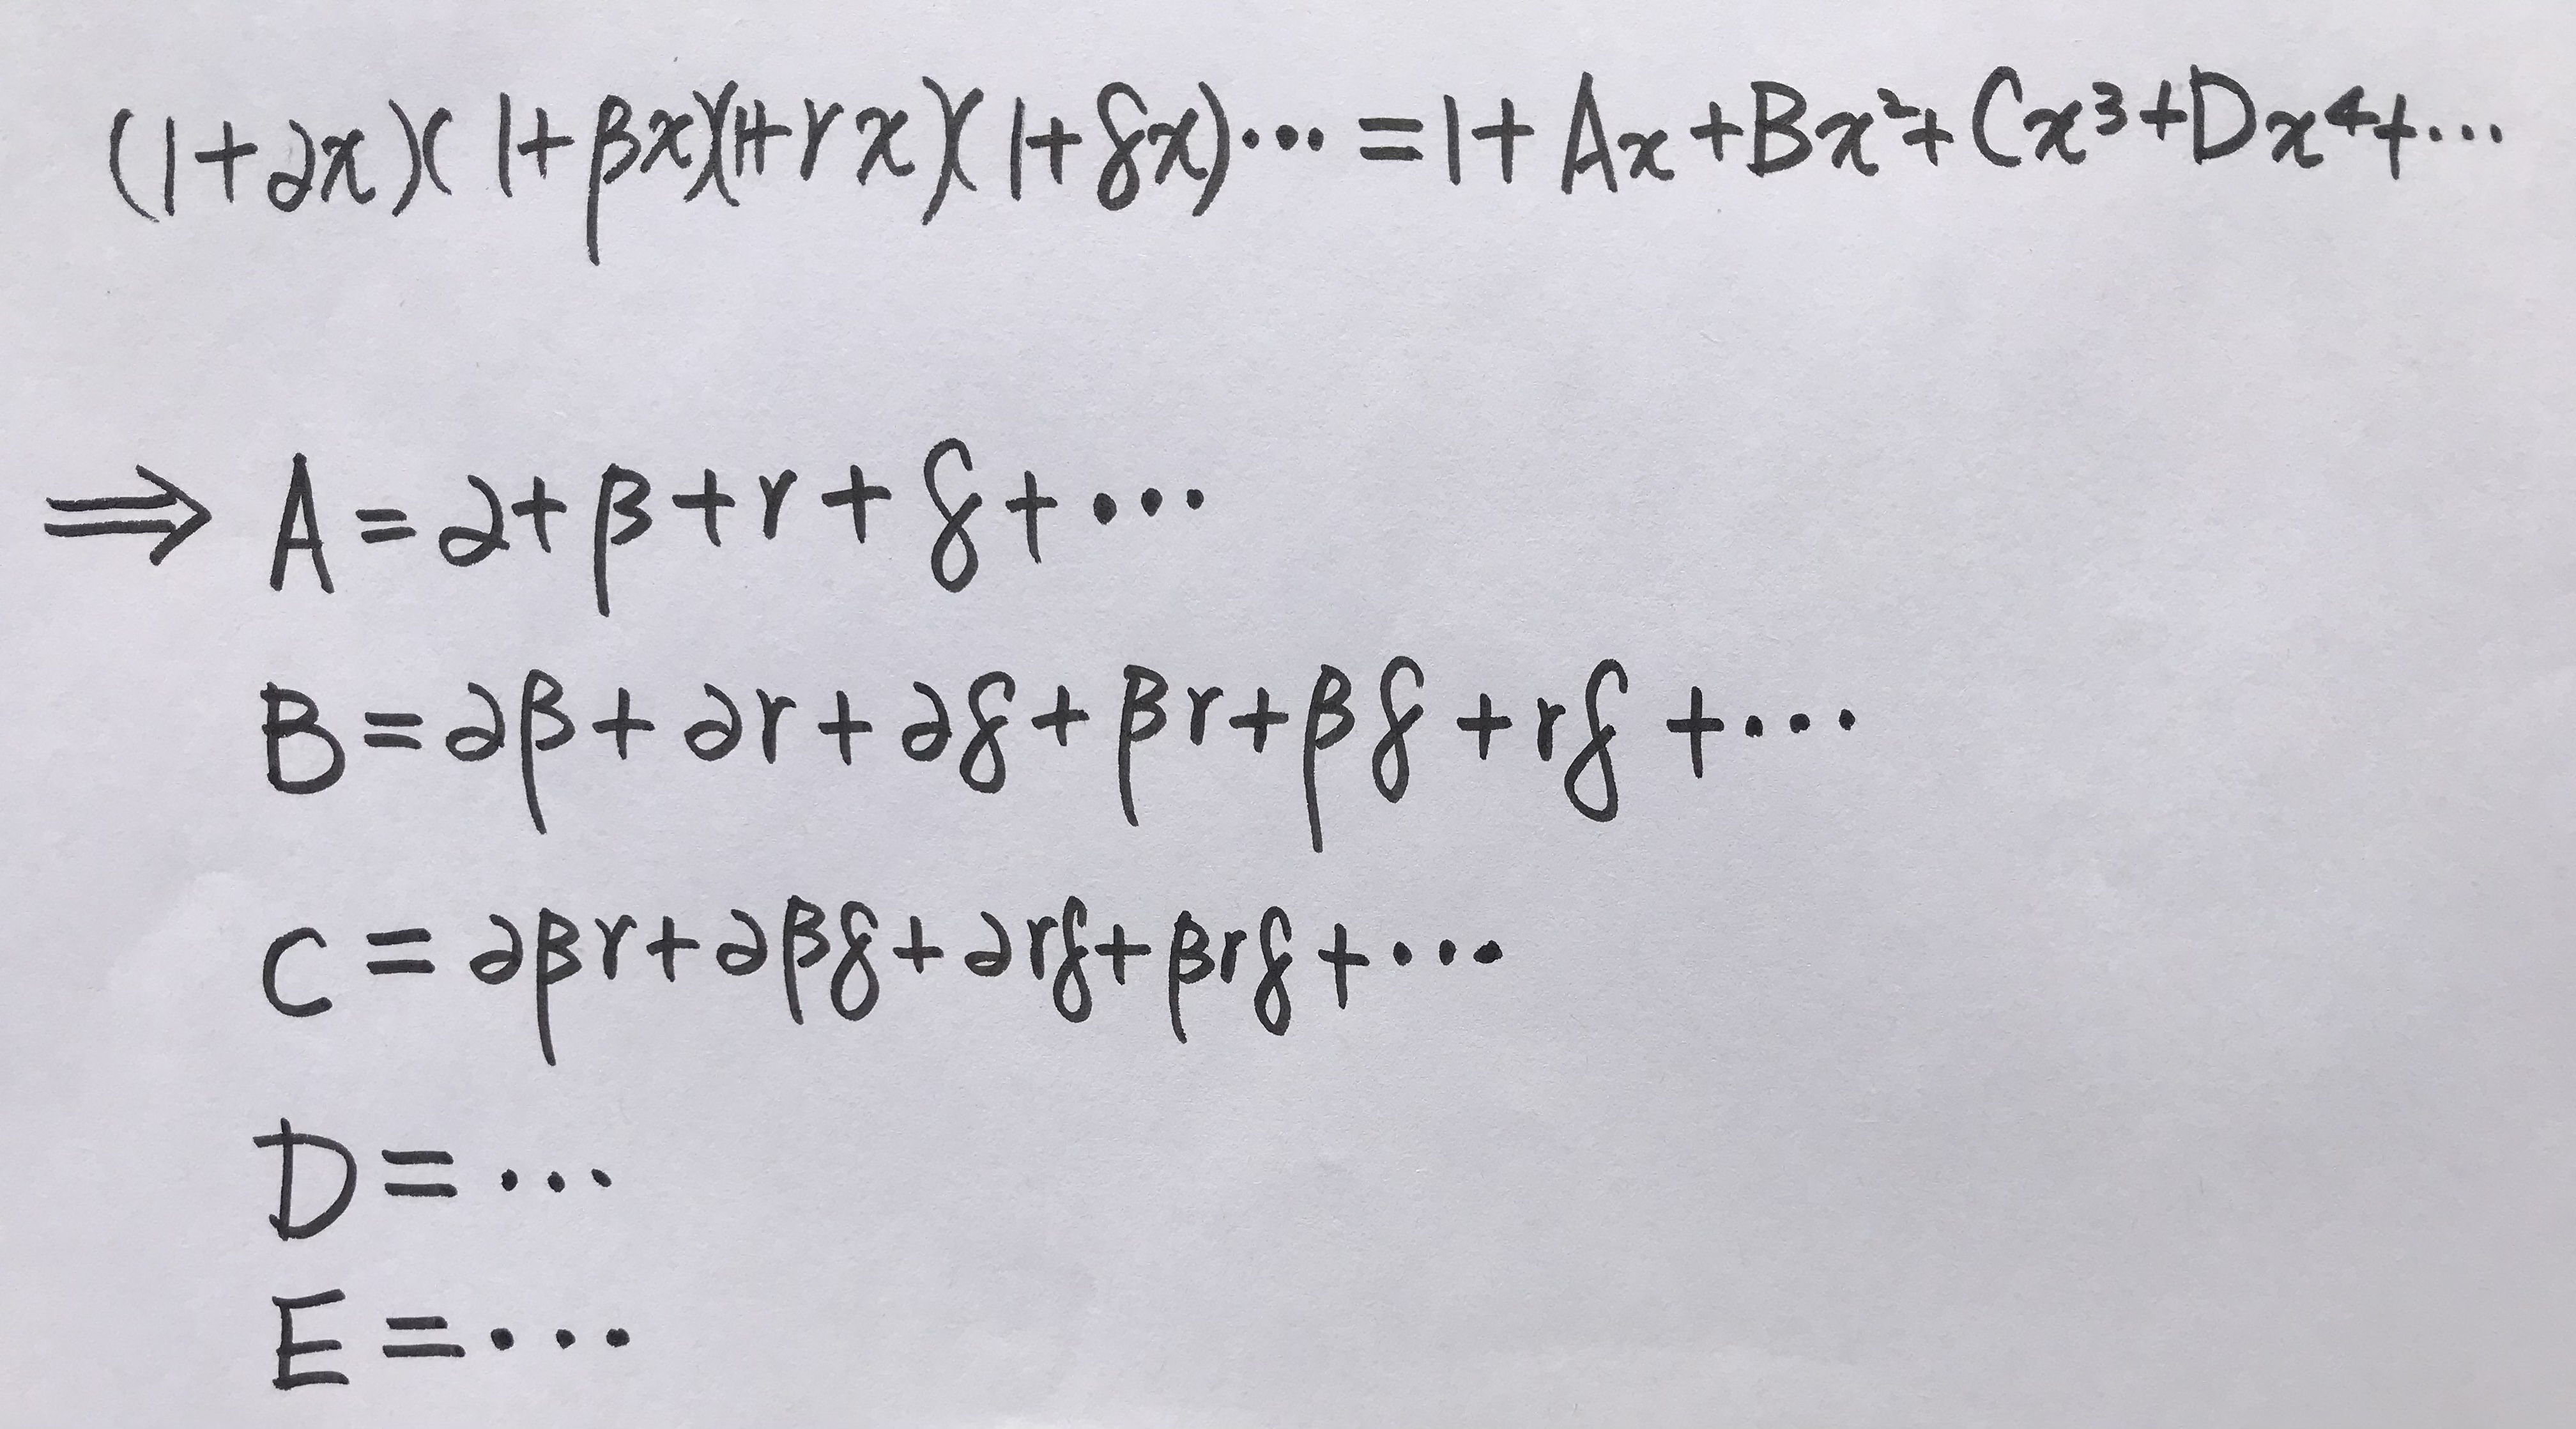 (1+αx)(1+βx)(1+γx)(1+δx)⋯=1+Ax+Bx²+Cx³+Dx⁴+⋯
⇒ A=α+β+γ+δ+⋯
B=αβ+αγ+αδ+βγ+βδ+γδ+⋯
C=αβγ+αβδ+αγδ+βγδ+⋯
D=⋯
E=⋯